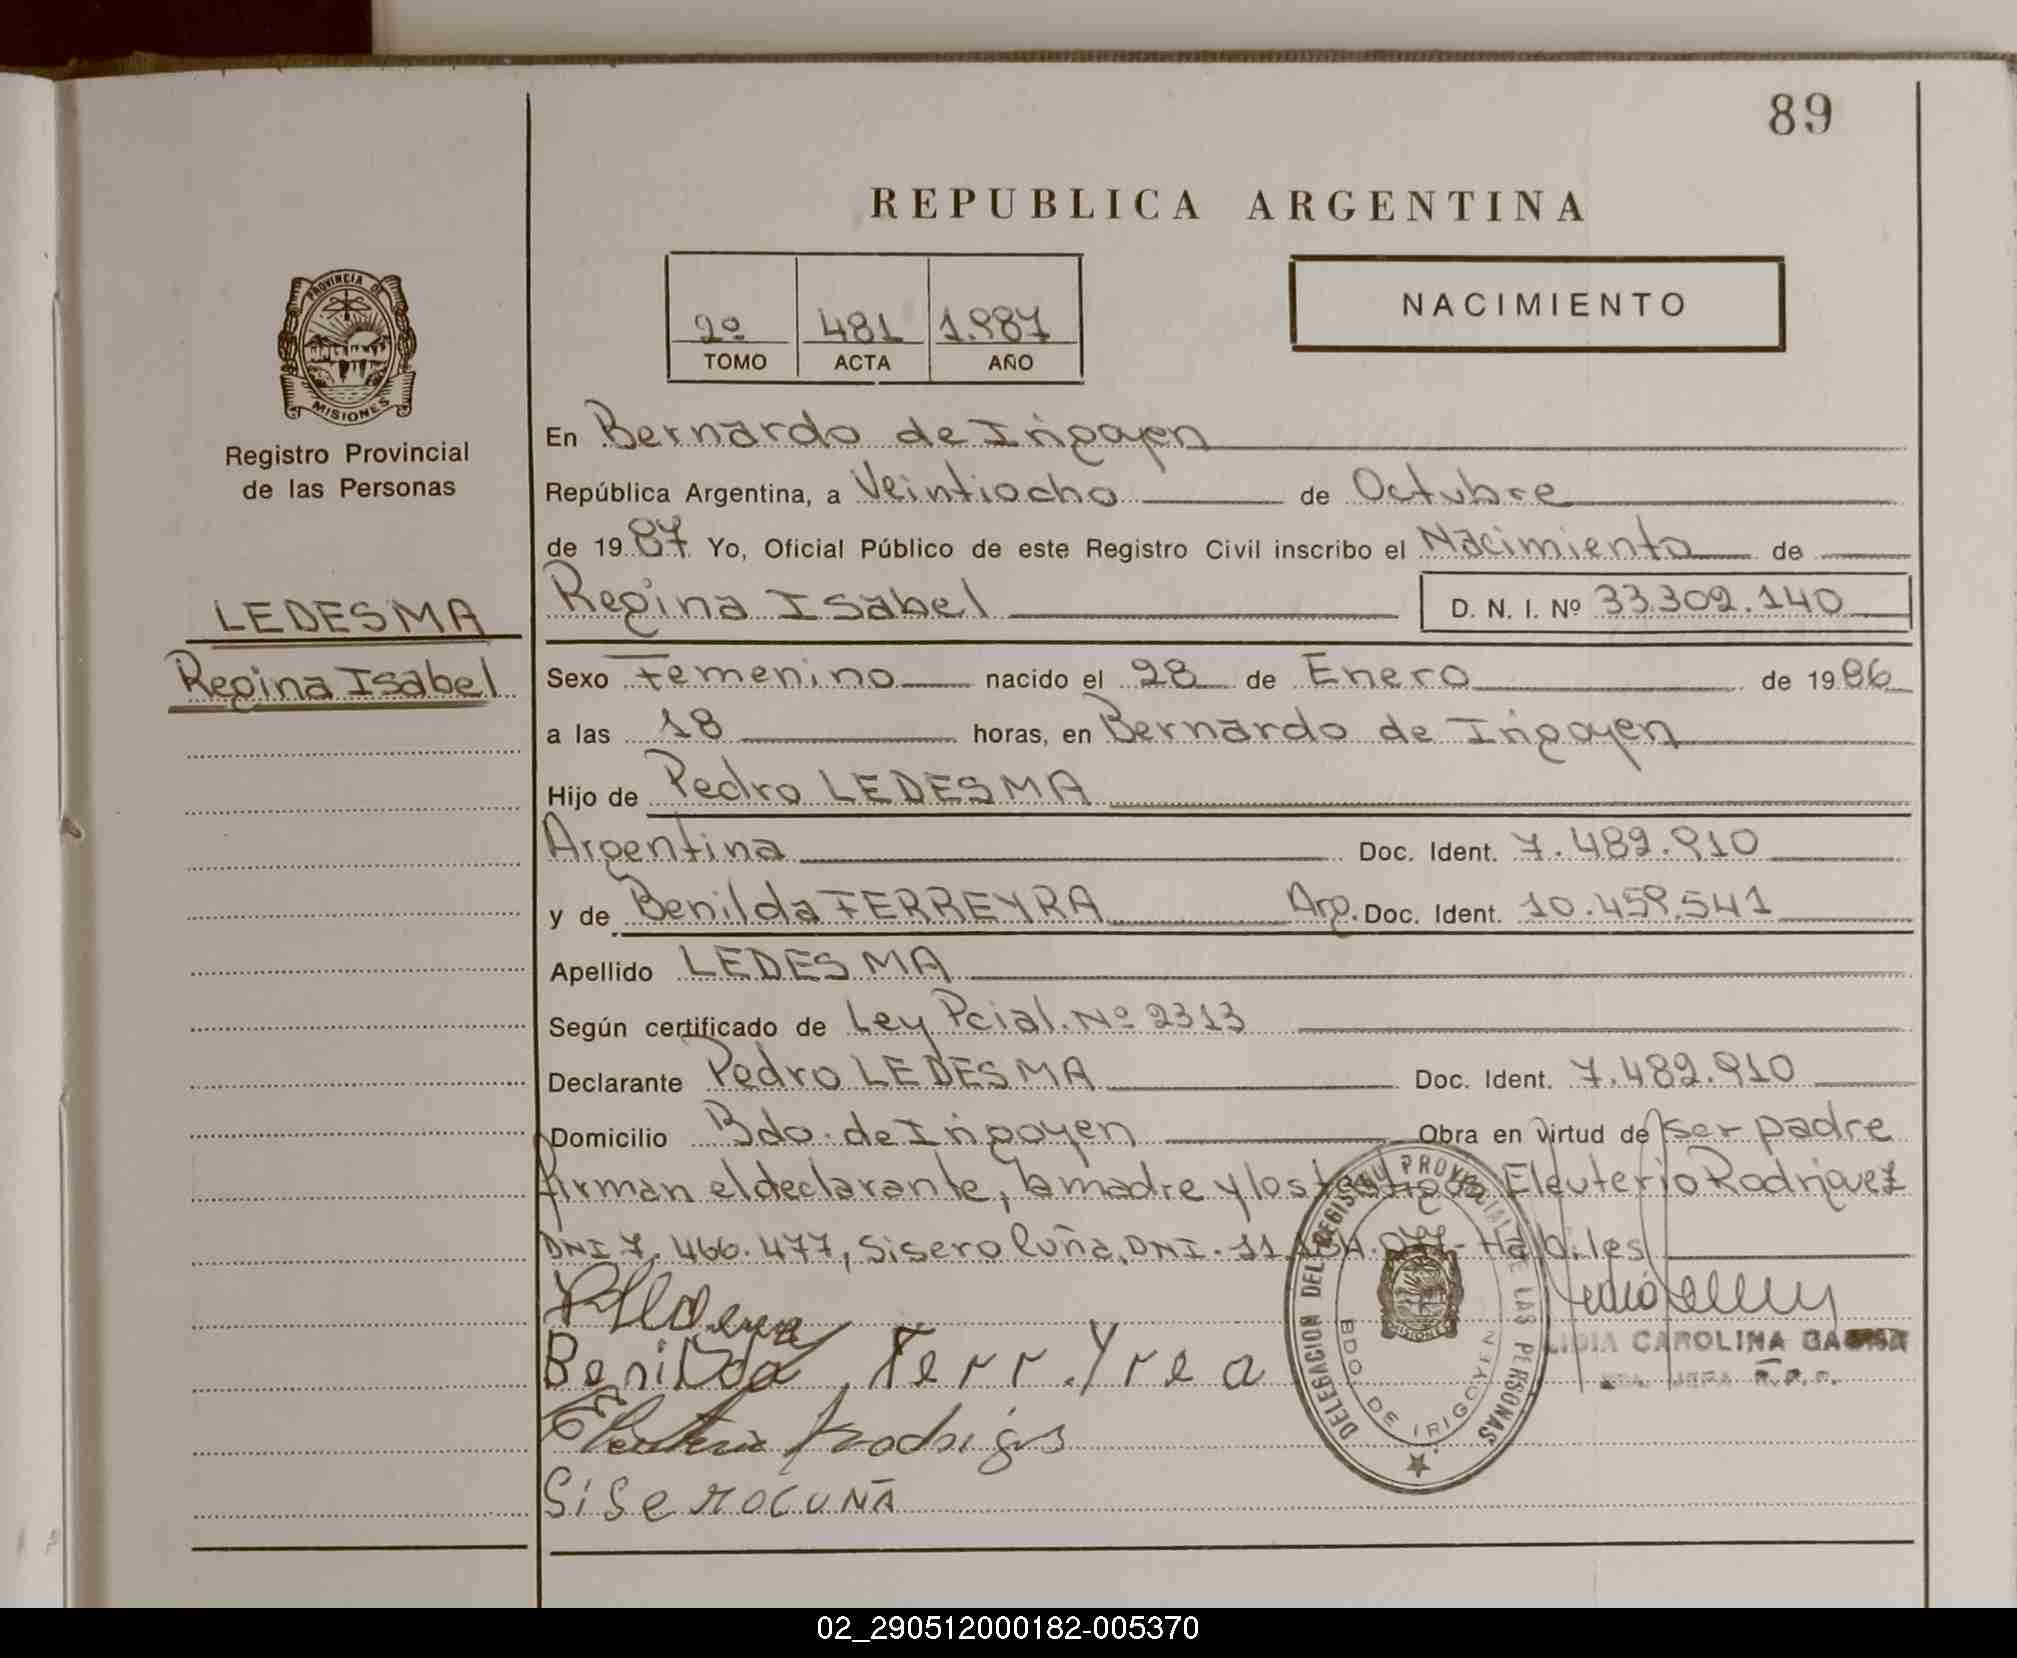 89
REPUBLICA ARGENTINA
2º 481 1.987
TOMO ACTA AÑO
NACIMIENTO
PROVINCIA DE
MISIONES
Registro Provincial
de las Personas
LEDESMA
Regina Isabel
En Bernardo de Irigoyen
República Argentina, a Veintiocho de Octubre
de 1987 Yo, Oficial Público de este Registro Civil inscribo el Nacimiento de
Regina Isabel D. N. I. Nº 33.302.140
Sexo Femenino nacido el 28 de Enero de 1986
a las 18 horas, en Bernardo de Irigoyen
Hijo de Pedro LEDESMA
Argentina Doc. Ident. 7.482.910
y de Benilda FERREYRA Arg. Doc. Ident. 10.459.541
Apellido LEDESMA
Según certificado de Ley Pcial. Nº 2313
Declarante Pedro LEDESMA Doc. Ident. 7.482.910
Domicilio Bdo. de Irigoyen Obra en virtud de ser padre
firman el declarante, la madre y los testigos Eleuterio Rodriguez
DNI 7.466.477, Sisero Cuña, DNI. 11. Habiles
Benilda Ferr.Yrea
Rodrigus
SiSeroCUÑA
DELEGACION DEL REGISTRO PROVINCIAL DE LAS PERSONAS
BDO DE IRIGOYEN
MISIONES
LIDIA CAROLINA
JEFA R.P.P.
02_290512000182-005370